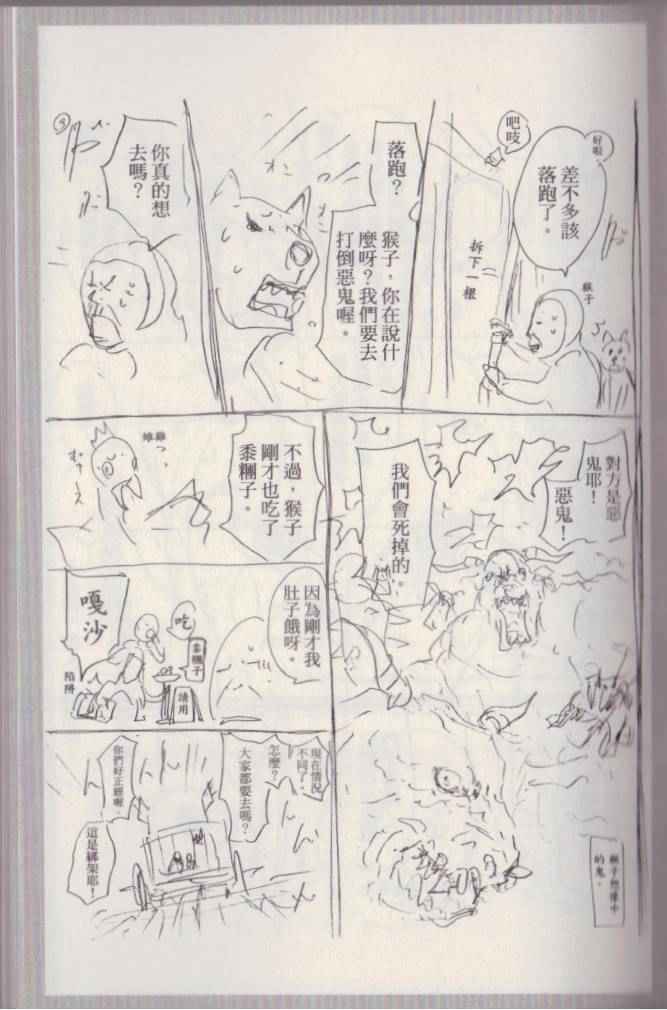 好啦，
差不多該
落跑了。
吧吱
猴子
拆下一根
落跑？
猴子，你在說什
麼呀？我們要去
打倒惡鬼喔。
你真的想
去嗎？
對方是惡
鬼耶！
惡鬼！
我們會死掉的。
猴子想像中
的鬼。
不過，猴子
剛才也吃了
黍糰子。
雉雞
因為剛才我
肚子餓呀。
吃
黍糰子
請用
嘎沙
陷阱
現在情況
不同了。
怎麼？
大家都要去嗎？
你們好正經喔，
這是綁架耶！